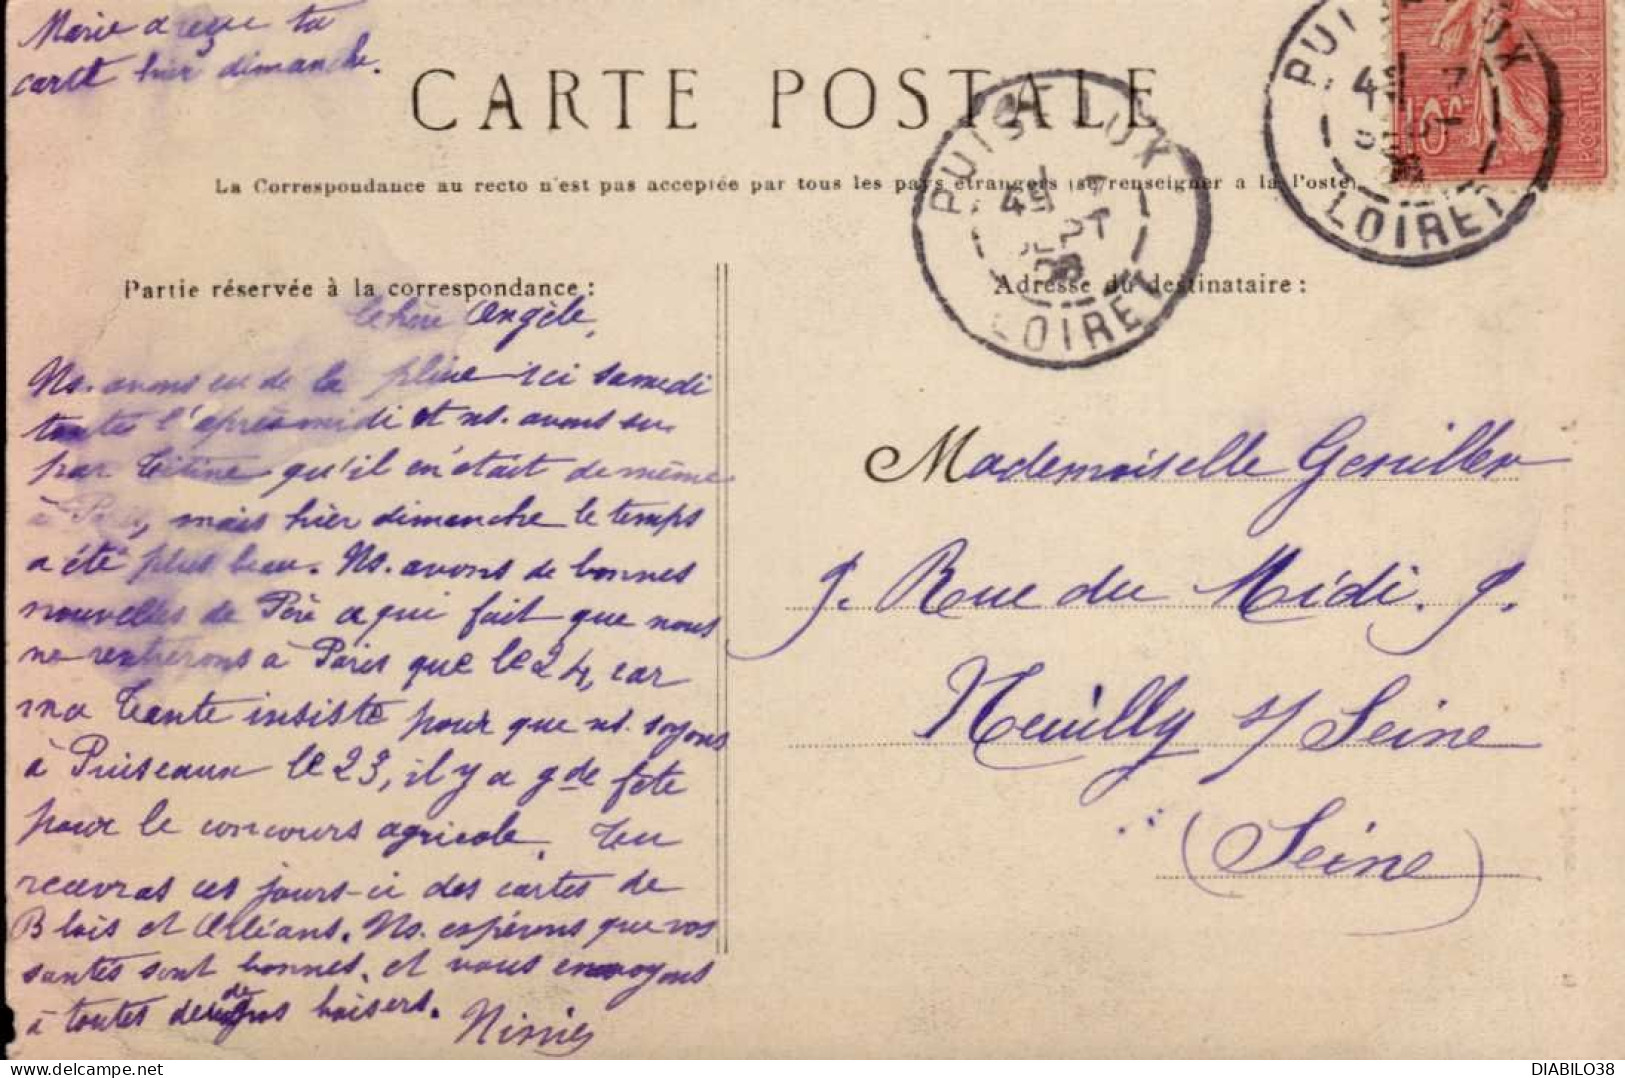 Marie a reçue ta
carte hier dimanche.
CARTE POSTALE
La Correspondance au recto n'est pas acceptée par tous les pays étrangers (se renseigner a la Poste)
PUISEAUX
LOIRET
PUISEAUX
LOIRET
10
POSTES
Partie réservée à la correspondance :
Adresse du destinataire :
Angèle,
Ns. avons eu de la pluie ici samedi
toute l'après midi et ns. avons su
par Titine qu'il en était de même
à Paris, mais hier dimanche le temps
a été plus beau. Ns. avons de bonnes
nouvelles de Père a qui fait que nous
ne rentrerons à Paris que le 24, car
ma Tante insiste pour que ns. soyons
à Puiseaux le 23, il y a gde fête
pour le concours agricole. Tu
recevras ces jours-ci des cartes de
Blois et Orléans. Ns. espérons que vos
santés sont bonnes, et vous envoyons
à toutes de gros baisers.
Mademoiselle Genillier
9. Rue du Midi. 9.
Neuilly s/ Seine
(Seine)
DIABILO38